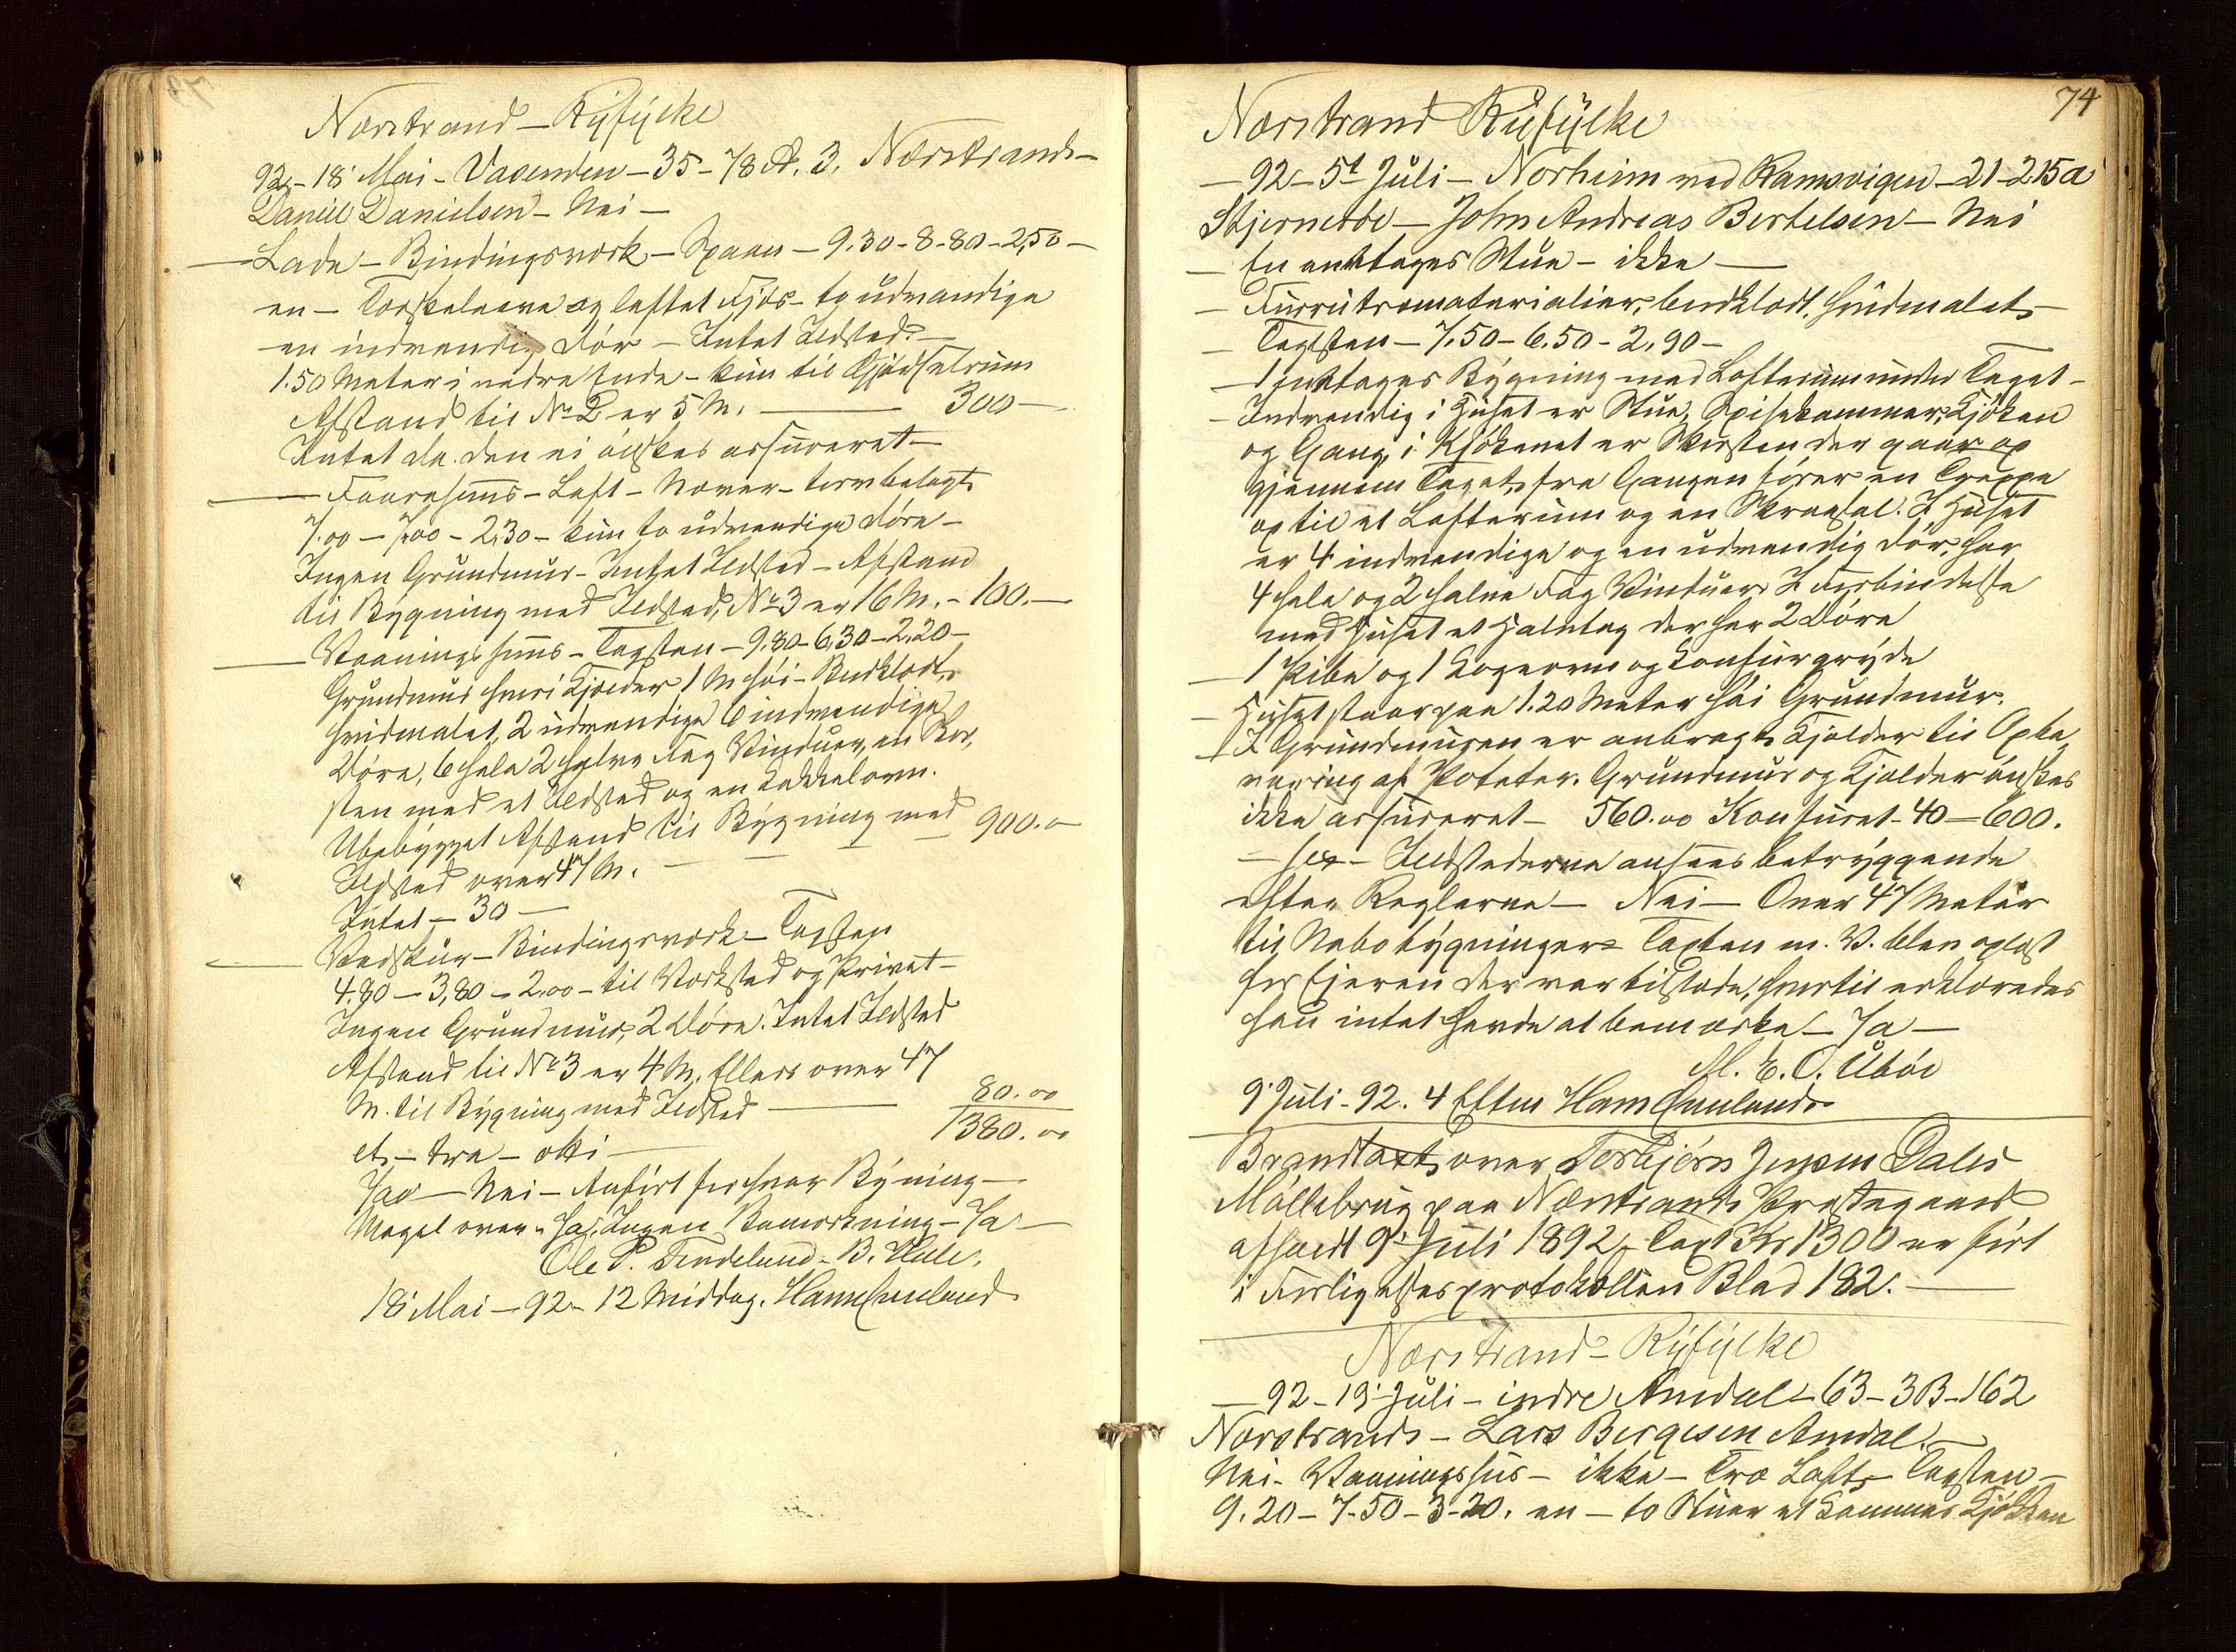 Nærstrand – Ryfylke
92 – 18' Mai – Vasenden – 35 – 78 A. 3. Nærstrands –
Daniel Danielsen – Nei –
– Lade – Bindingsværk – Spaan – 9.30 – 8-80 – 2,50 –
en – Torskelaave og loftet Fjøs – to udvændige
en indvendig Dør – Intet Ildsted –
1.50 Meter i nedre Ende – kun til Gjødselrum
Afstand til No 2 er 5 M. – 300 –
Intet da den ei ønskes assureret –
– Faarehuus – Loft – Næver – torvbelagt
7.00 – 7.00 – 2.30 – kun to udvendige Døre –
Ingen Grundmur – Intet Ildsted – Afstand
til Bygning med Ildsted, No 3 er 16 M. – 100. –
– Vaaningshuus – Tagsten – 9.80 – 6,30 – 2.20 –
Grundmur hvori Kjælder 1 M høi – Bordklædt,
hvidmalet, 2 udvendige 6 indvendige
Døre, 6 hele 2 halve Fag Vinduer, en Skor-
sten med et Ildsted og en Kakkelovn.
Ubebygget Afstand til Bygning med 900.0
Ildsted over 47 M. –
Intet – 30 –
– Vedskur – Bindingsværk – Tagsten
4.80 – 3,80 – 2.00 – til Værksted og Privet –
Ingen Grundmur, 2 Døre. Intet Ildsted
Afstand til No 3 er 4 M. Ellers over 47
M. til Bygning med Ildsted – 80.00
1380.00
et – tre – otti –
Ja – Nei – Anført for hver Bygning –
Meget over – Ja, Ingen Bemærkning – Ja –
Ole P. Tendeland – B. Hule.
18' Mai – 92 – 12 Middag. Hans
74
Nærstrand Ryfylke
– 92 – 5t Juli – Norheim ved Ramsvigen – 21 – 215 a
Stjernerøe – John Andreas Bertelsen – Nei
– En enetages Stue – ikke –
– Furrutræmaterialier, bordklædt, hvidmalet –
– Tagsten – 7.50 – 6.50 – 2.90 –
– 1 enetages Bygning med Lofterum under Taget –
– Indvendig i Huset er Stue, Spisekammer, Kjøken
og Gang, i Kjøkenet er Skorsten der gaar op
gjennem Taget, fra Gangen fører en Treppe
op til et Lofterum og en Skraasal. I Huset
er 4 indvendige og en udvendig Dør, har
4 hele og 2 halve Fag Vinduer. I Forbindelse
med Huset et Halvtag der har 2 Døre
– 1 Pibe og 1 Kogeovn og Konfurgryde
– Huset staar paa 1.20 Meter høi Grundmur.
– I Grundmuren er anbragt Kjælder til Opbe-
varing af Poteter. Grundmur og Kjælder ønskes
ikke assureret – 560.00 Konfuret – 40 – 600.
– sex – Ildstederne ansees betryggende
efter Reglerne – Nei – Over 47 Meter
til Nabobygninger – Taxten m. V. blev oplæst
for Eieren der var tilstede, hvortil erklæredes
han intet havde at bemærke – Ja –
M. E. O. Ubøe
9' Juli – 92. 4 Efterm Hans
Brandtaxt over Torbjørn Jensen Dales
Møllebrug paa Nærstrands Præstegaard
afholdt 9' Juli 1892, Taxt Kr 1300 er ført
i Forligelsesprotokollen Blad 182. –
Nærstrand – Ryfylke
– 92 – 19' Juli – indre Amdal – 63 – 3B – 162
Nærstrands – Lars Bergesen Amdal –
Nei – Vaaningshus – ikke – Træ Loft, Tagsten –
9.20 – 7.50 – 3.20. en – to Stuer et Kammer Kjøkken